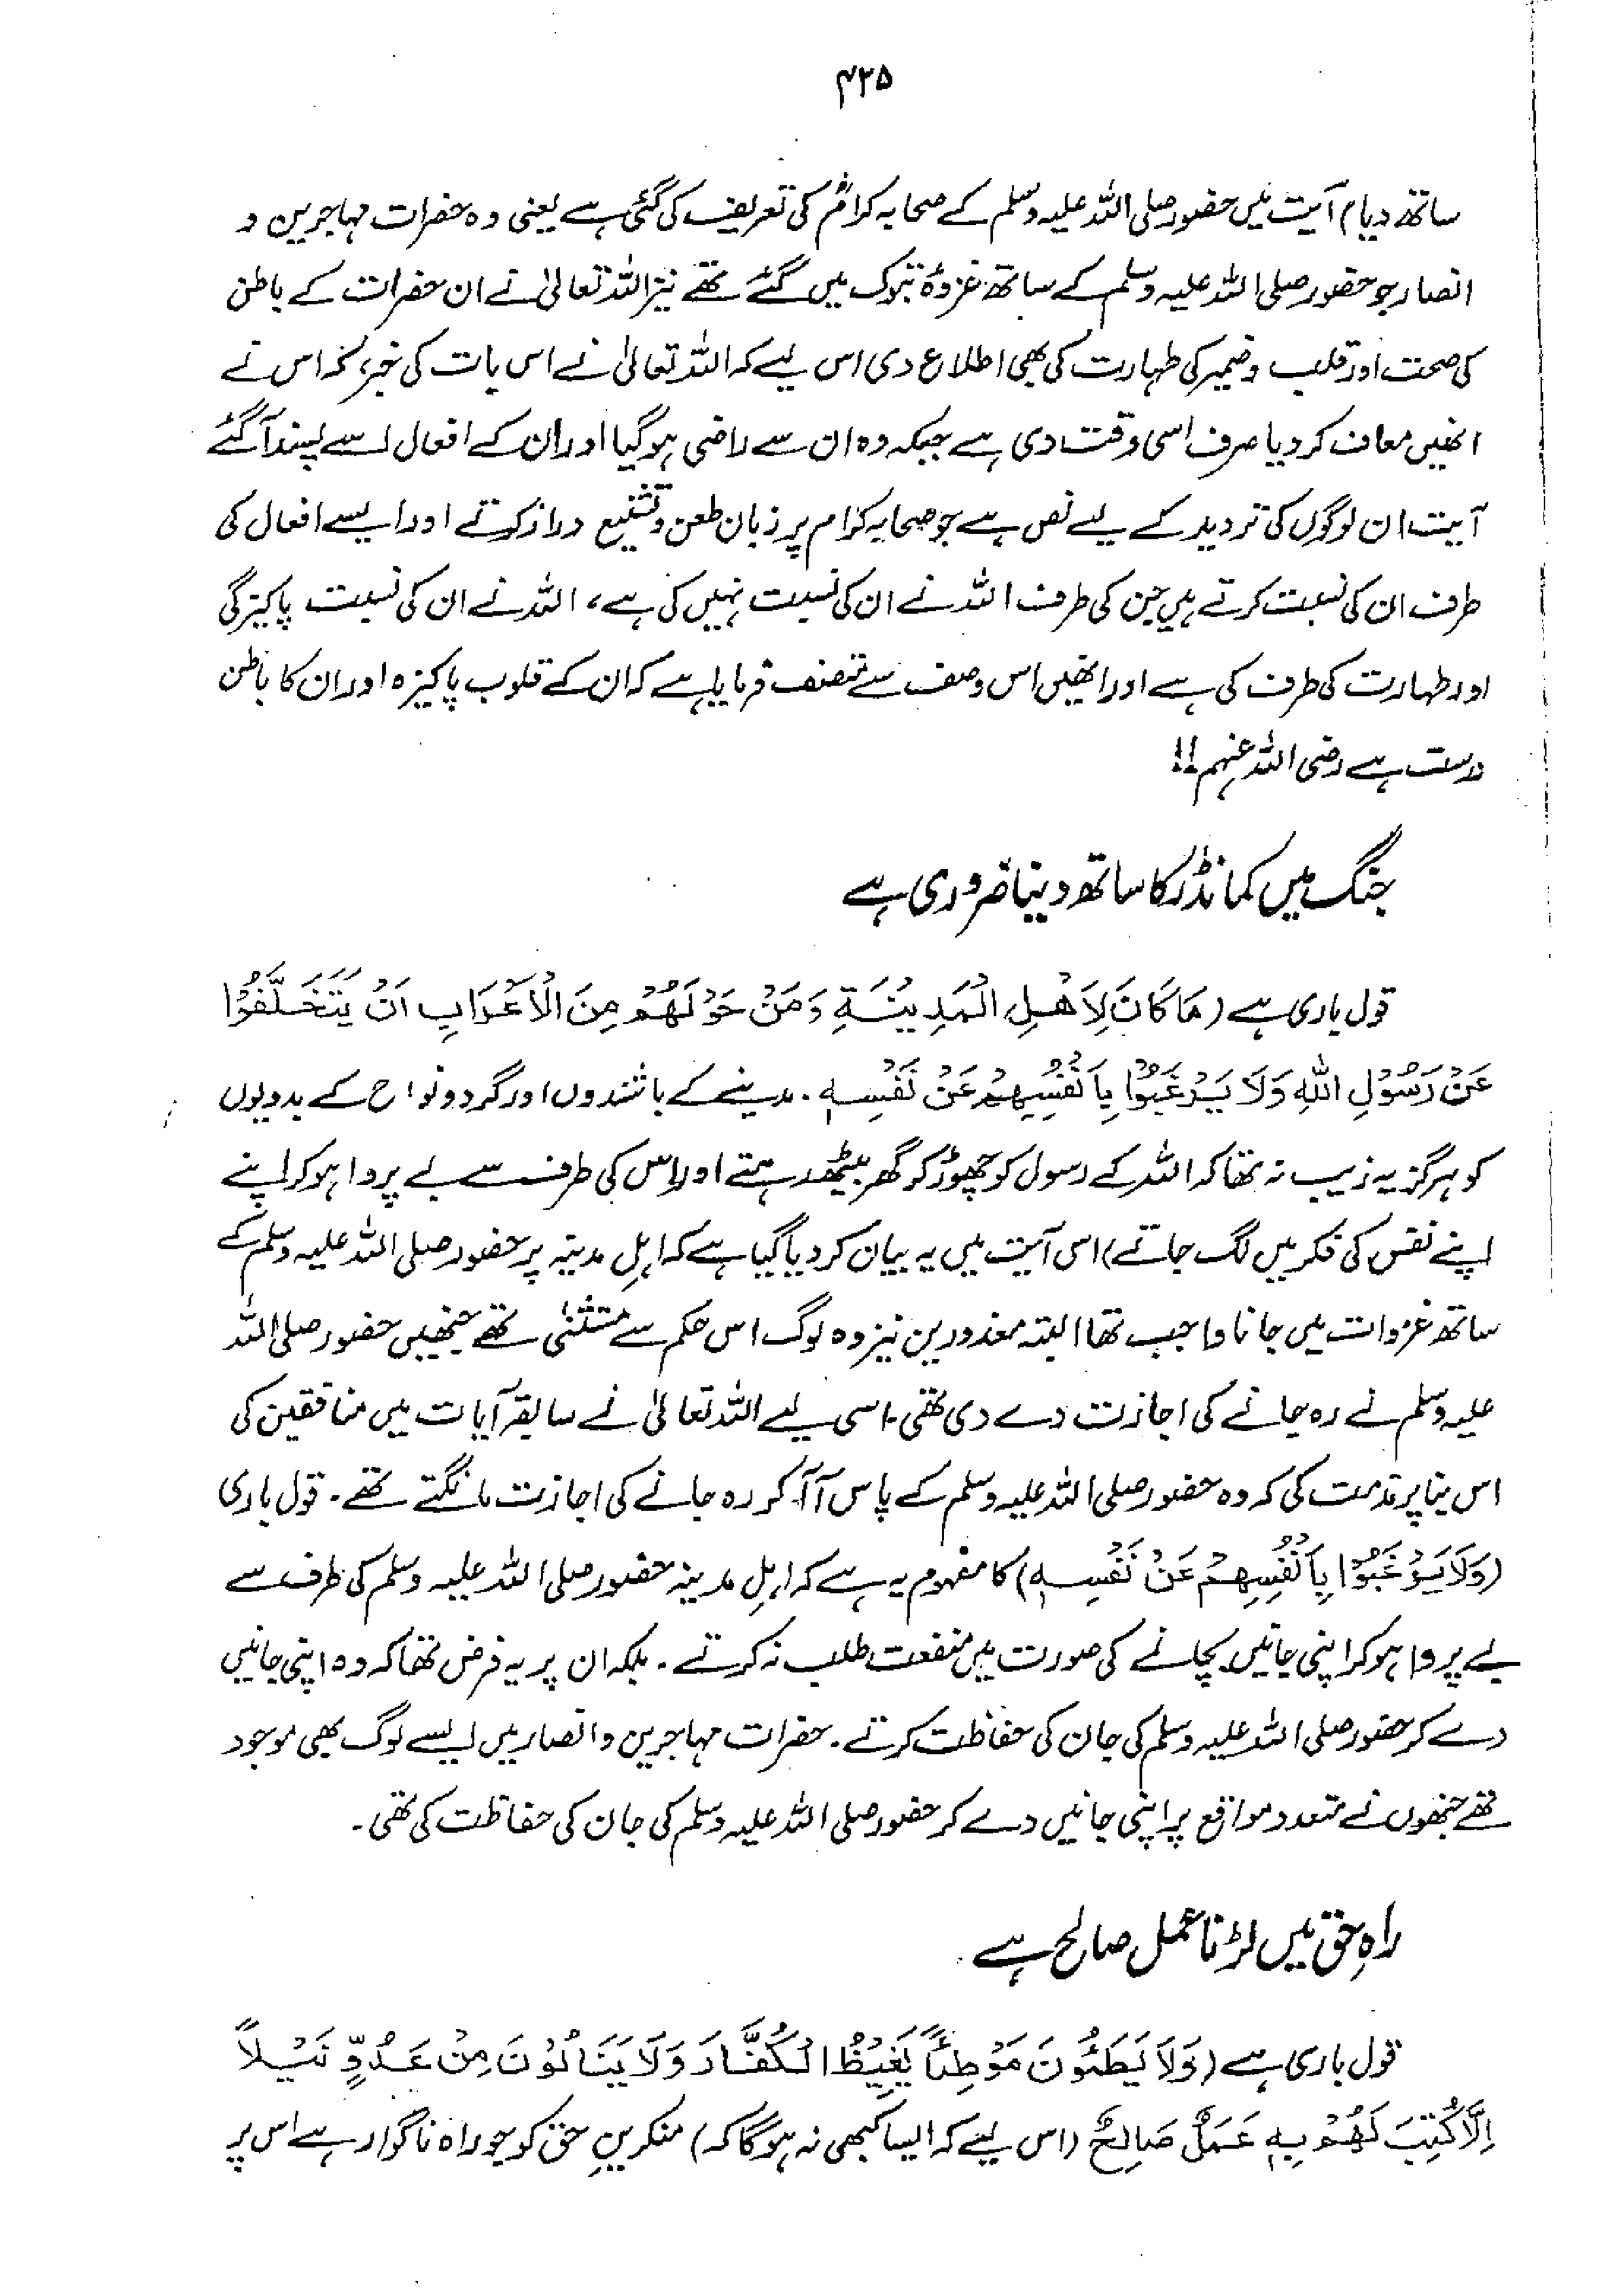 ۴۲۵
ساتھ دیا) آیت میں حضور صلی اللہ علیہ وسلم کے صحابہ کرامؓ کی تعریف کی گئی ہے یعنی وہ حضرات مہاجرین و
انصار جو حضور صلی اللہ علیہ وسلم کے ساتھ غزوۂ تبوک میں گئے تھے نیز اللہ تعالیٰ نے ان حضرات کے باطن
کی صحت اور قلب و ضمیر کی طہارت کی بھی اطلاع دی اس لیے کہ اللہ تعالیٰ نے اس بات کی خبر، کہ اس نے
انھیں معاف کر دیا صرف اسی وقت دی ہے جبکہ وہ ان سے راضی ہو گیا اور ان کے افعال اسے پسند آ گئے
آیت ان لوگوں کی تردید کے لیے نص ہے جو صحابہ کرام پر زبان طعن و تشنیع دراز کرتے اور ایسے افعال کی
طرف ان کی نسبت کرتے ہیں جن کی طرف اللہ نے ان کی نسبت نہیں کی ہے، اللہ نے ان کی نسبت پاکیزگی
اور طہارت کی طرف کی ہے اور انھیں اس وصف سے متصف فرمایا ہے کہ ان کے قلوب پاکیزہ اور ان کا باطن
درست ہے رضی اللہ عنہم!!
جنگ میں کمانڈر کا ساتھ دینا ضروری ہے
قول باری ہے (مَا كَانَ لِاَهْلِ الْمَدِيْنَةِ وَمَنْ حَوْلَهُمْ مِنَ الْاَعْرَابِ اَنْ يَتَخَلَّفُوْا
عَنْ رَسُوْلِ اللهِ وَلَا يَرْغَبُوْا بِاَنْفُسِهِمْ عَنْ نَفْسِهٖ ۔ مدینے کے باشندوں اور گرد و نواح کے بدویوں
کو ہرگز یہ زیب نہ تھا کہ اللہ کے رسول کو چھوڑ کر گھر بیٹھ رہتے اور اس کی طرف سے بے پروا ہو کر اپنے
اپنے نفس کی فکر میں لگ جاتے) اس آیت میں یہ بیان کر دیا گیا ہے کہ اہلِ مدینہ پر حضور صلی اللہ علیہ وسلم کے
ساتھ غزوات میں جانا واجب تھا البتہ معذورین نیز وہ لوگ اس حکم سے مستثنیٰ تھے جنھیں حضور صلی اللہ
علیہ وسلم نے رہ جانے کی اجازت دے دی تھی۔ اسی لیے اللہ تعالیٰ نے سابقہ آیات میں منافقین کی
اس بنا پر مذمت کی کہ وہ حضور صلی اللہ علیہ وسلم کے پاس آ آ کر رہ جانے کی اجازت مانگتے تھے۔ قول باری
(وَلَا يَرْغَبُوْا بِاَنْفُسِهِمْ عَنْ نَفْسِهٖ) کا مفہوم یہ ہے کہ اہلِ مدینہ حضور صلی اللہ علیہ وسلم کی طرف سے
بے پروا ہو کر اپنی جانیں بچانے کی صورت میں منفعت طلب نہ کرتے۔ بلکہ ان پر یہ فرض تھا کہ وہ اپنی جانیں
دے کر حضور صلی اللہ علیہ وسلم کی جان کی حفاظت کرتے۔ حضرات مہاجرین و انصار میں ایسے لوگ بھی موجود
تھے جنھوں نے متعدد مواقع پر اپنی جانیں دے کر حضور صلی اللہ علیہ وسلم کی جان کی حفاظت کی تھی۔
راہِ حق میں لڑنا عمل صالح ہے
قول باری ہے (وَلَا يَطَئُوْنَ مَوْطِئًا يَغِيْظُ الْكُفَّارَ وَلَا يَنَالُوْنَ مِنْ عَدُوٍّ نَيْلًا
اِلَّا كُتِبَ لَهُمْ بِهٖ عَمَلٌ صَالِحٌ (اس لیے کہ ایسا کبھی نہ ہوگا کہ) منکرینِ حق کو جو راہ ناگوار ہے اس پر